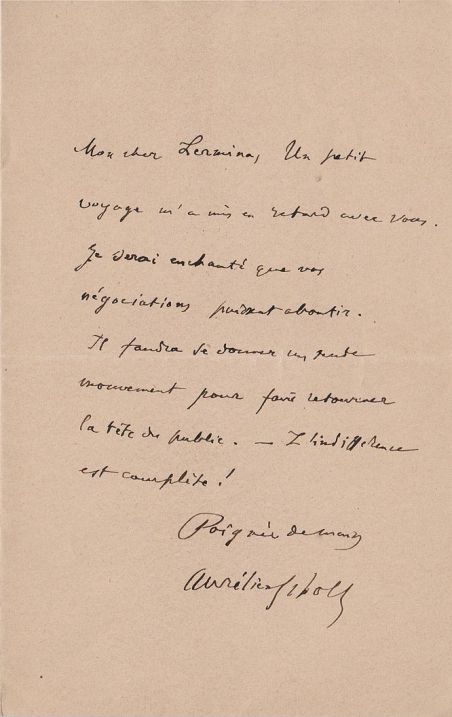 Mon cher Lermina, Un petit
voyage m'a mis en retard avec vous.
Je serai enchanté que vos
négociations puissent aboutir.
Il faudra se donner un rude
mouvement pour faire retourner
la tête du public. — L'indifférence
est complète !
Poignée de main
Aurélien Scholl